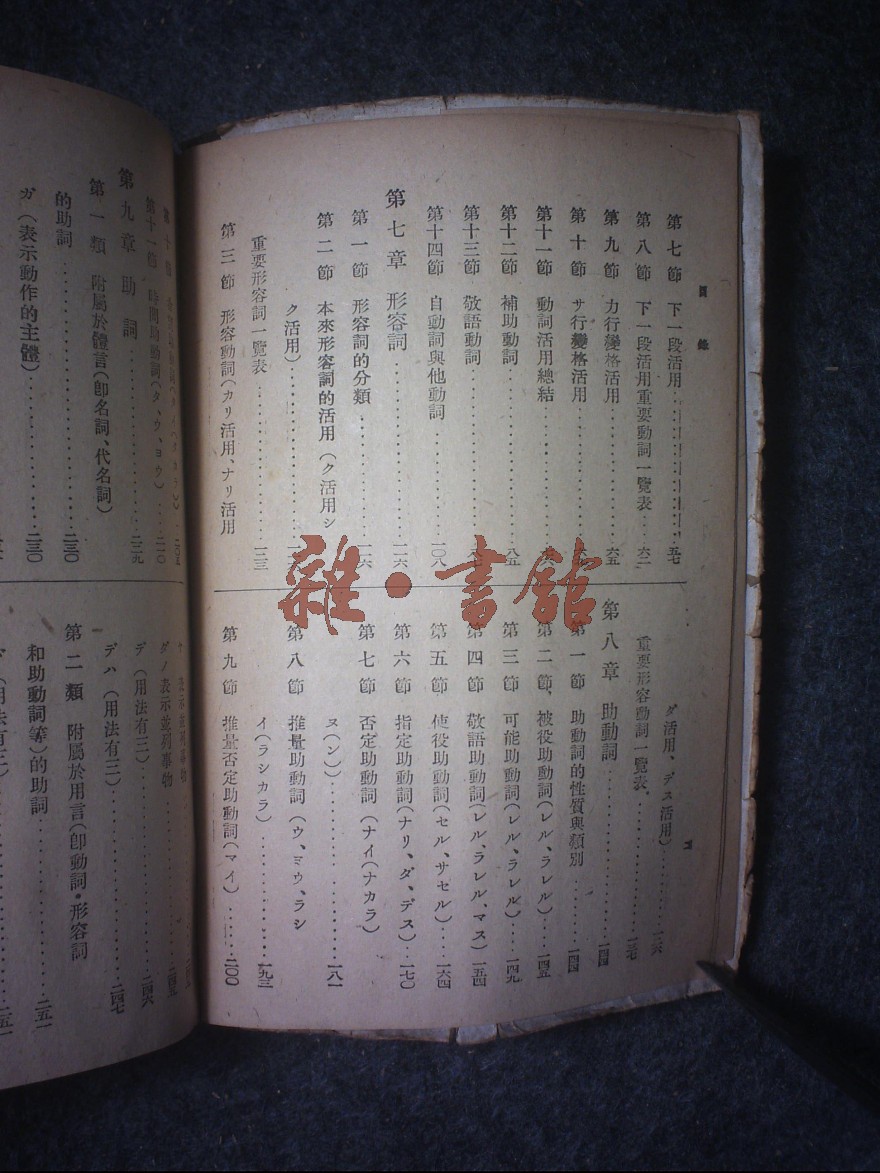 目錄
第七節 下一段活用……五七
第八節 下一段活用重要動詞一覽表…六二
第九節 カ行變格活用……六五
第十節 サ行變格活用……
第十一節 動詞活用總結……
第十二節 補助動詞……八五
第十三節 敬語動詞……
第十四節 自動詞與他動詞……一〇八
第七章 形容詞……一一六
第一節 形容詞的分類……一一六
第二節 本來形容詞的活用(ク活用シ
ク活用)……
重要形容詞一覽表……一二三
第三節 形容動詞(カリ活用、ナリ活用
ダ活用、デス活用)……一二六
重要形容動詞一覽表……一三七
第八章 助動詞……一四四
第一節 助動詞的性質與類別……一四四
第二節、被役助動詞(レル、ラレル)…一四五
第三節 可能助動詞(レル、ラレル)…一四九
第四節 敬語助動詞(レル、ラレル、マス)一五四
第五節 使役助動詞(セル、サセル)…一六四
第六節 指定助動詞(ナリ、ダ、デス)…一七〇
第七節 否定助動詞(ナイ(ナカラ)
ヌ(ン))……一八一
第八節 推量助動詞(ウ、ヨウ、ラシ
イ(ラシカラ)……一九三
第九節 推量否定助動詞(マイ)……二〇〇
第十節
第十一節 時間助動詞(タ、ウ、ヨウ)…二一〇
第九章 助詞……二二九
第一類 附屬於體言(卽名詞、代名詞)
的助詞……二三〇
ガ(表示動作的主體)……二三〇
ダノ表示並列事物……二四五
デ(用法有三)……二四六
デハ(用法有三)……二四七
第二類 附屬於用言(卽動詞・形容詞
和助動詞等)的助詞……二五一
雜・書館